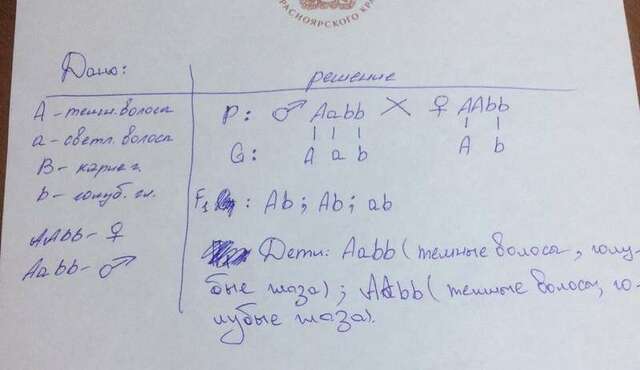 КРАСНОЯРСКОГО КРА
Дано:
решение
А - темн. волоса
а - светл. волоса
В - карие г.
b - голуб. гл.
ААbb - ♀
Ааbb - ♂
P: ♂ Aabb × ♀ AAbb
G: A a b A b
F1: Ab; Ab; ab
Дети: Aabb (темные волосы, голу-
бые глаза); AAbb (темные волосы, го-
лубые глаза).